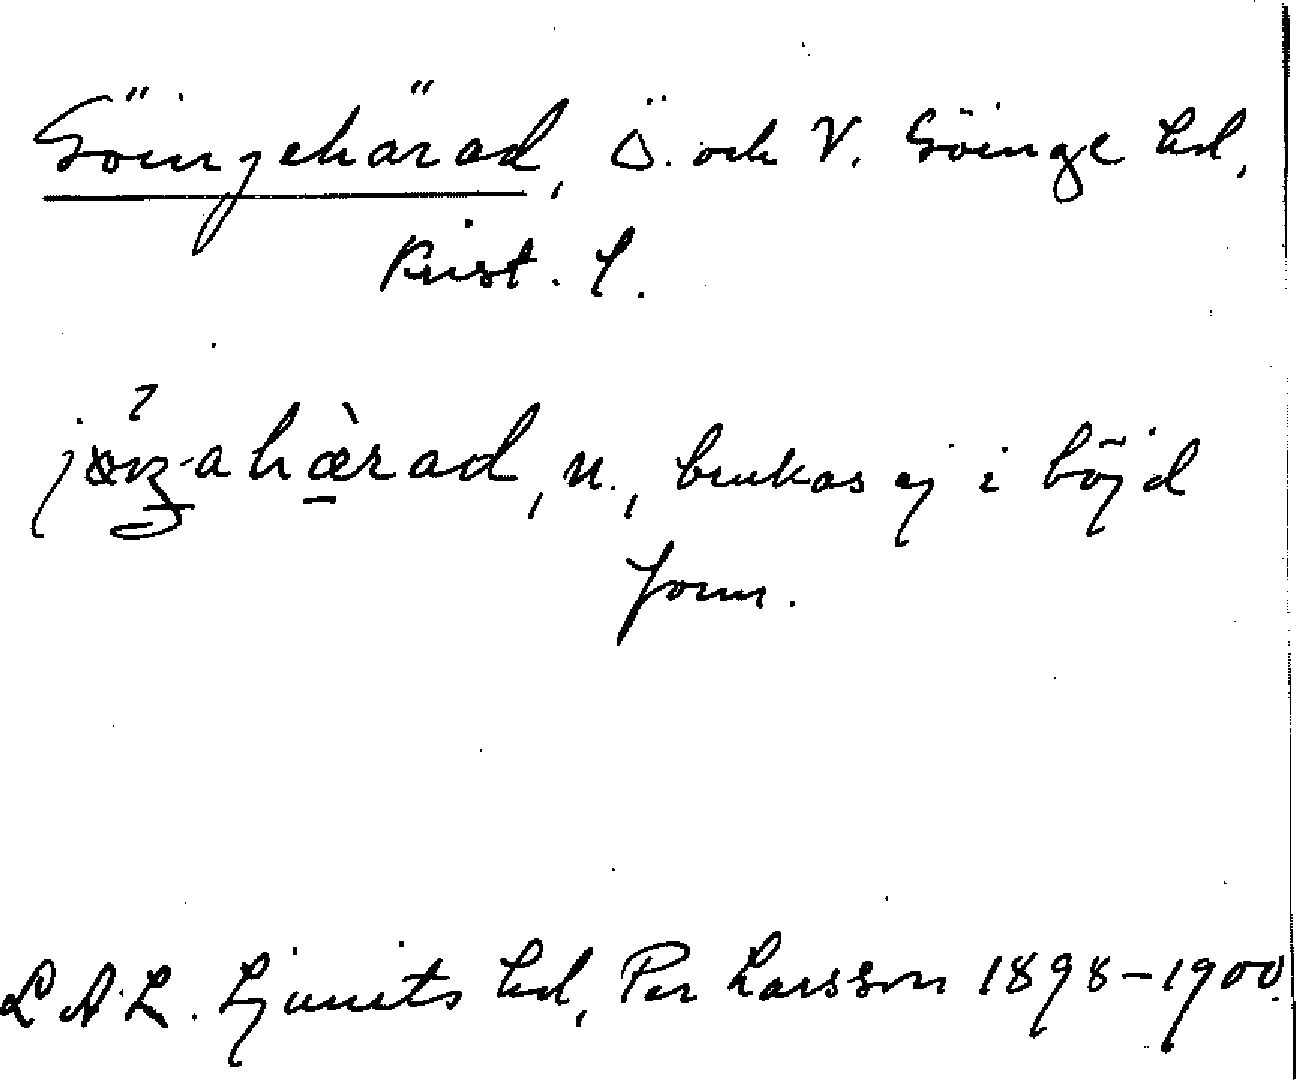 Göingehärad, Ö. och V. Göinge hd,
Krist. l.
n., brukas ej i böjd
form.
L.A.L. Ljunits hd, Per Larsson 1898-1900.